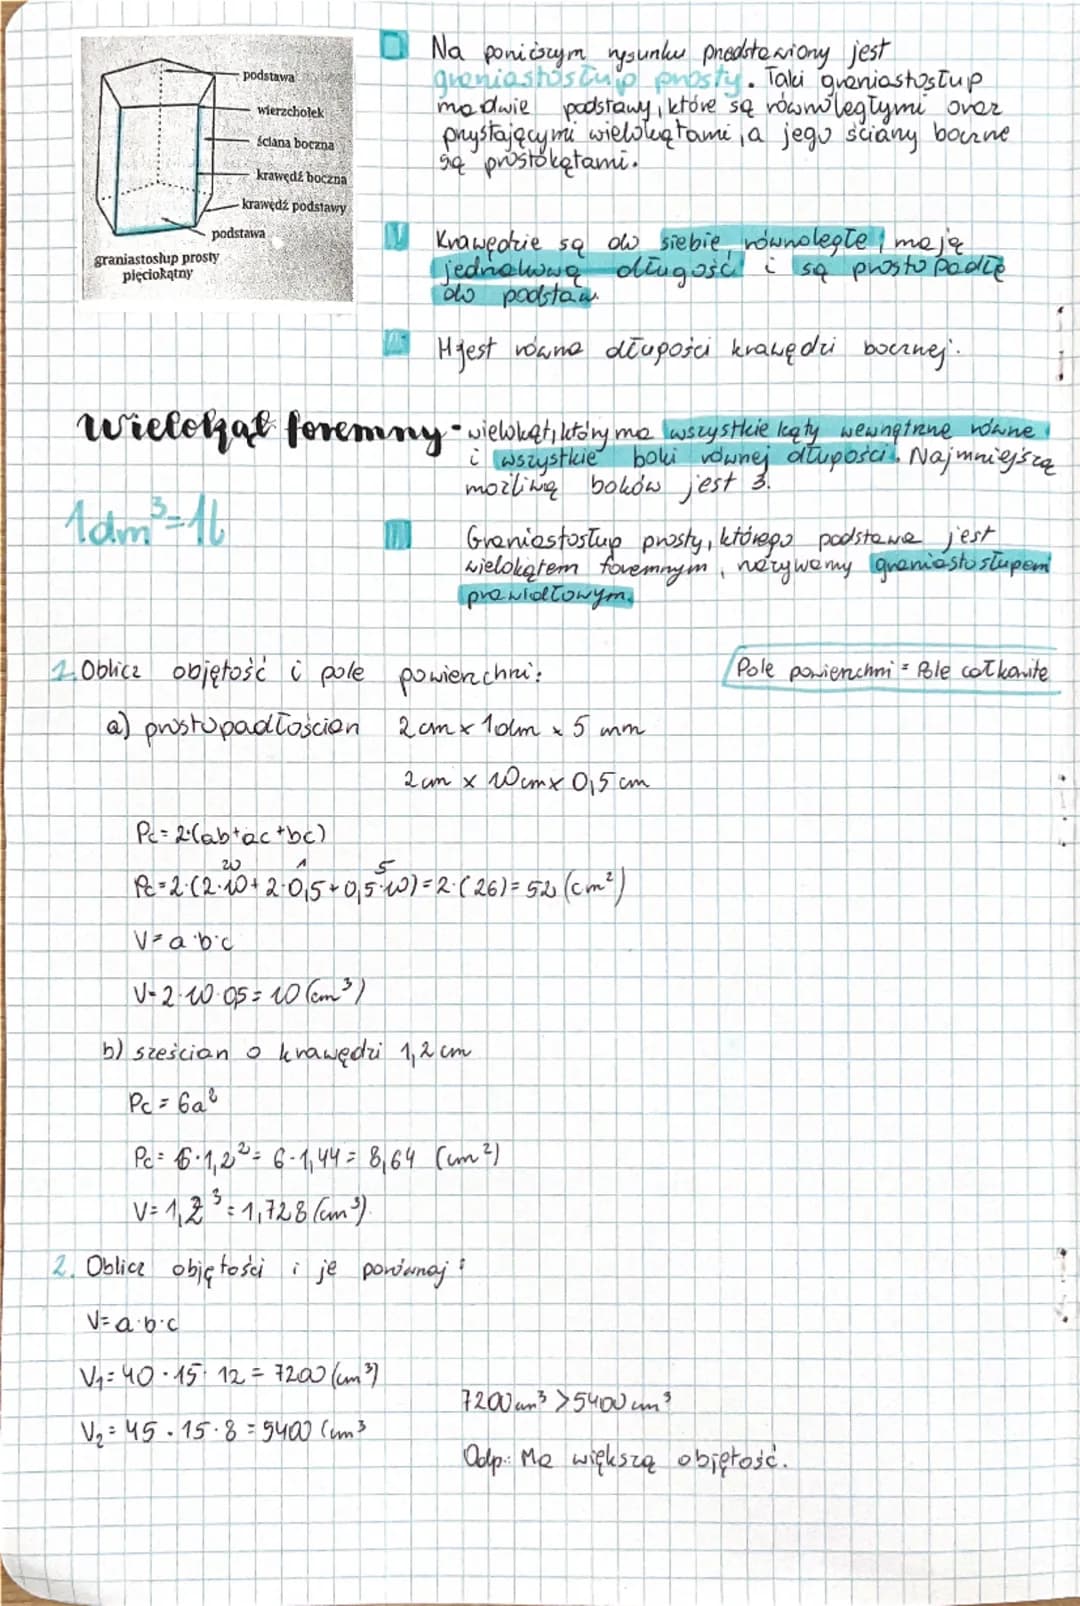 podstawa
wierzchołek
ściana boczna
krawędź boczna
krawędź podstawy
podstawa
graniastosłup prosty
pięciokątny
Na poniższym rysunku przedstawiony jest
graniastosłup prosty. Taki graniastosłup
ma dwie podstawy, które są równoległymi oraz
przystającymi wielokątami, a jego ściany boczne
są prostokątami.
Krawędzie są do siebie równoległe, mają
jednakową długość i są prostopadłe
do podstaw.
H jest równa długości krawędzi bocznej.
Wielokąt foremny - wielokąt, który ma wszystkie kąty wewnętrzne równe
i wszystkie boki równej długości. Najmniejszą
możliwą boków jest 3.
1dm³=1l
Graniastosłup prosty, którego podstawa jest
wielokątem foremnym, nazywamy graniastosłupem
prawidłowym.
1. Oblicz objętość i pole powierzchni:
Pole powierzchni = Pole całkowite
a) prostopadłościan 2cm x 1dm x 5 mm
2cm x 10cm x 0,5cm
Pc = 2·(ab+ac+bc)
20 1 5
Pc=2·(2·10+2·0,5+0,5·10)=2·(26)=52 (cm²)
V=a·b·c
V=2·10·0,5=10 (cm³)
b) sześcian o krawędzi 1,2 cm
Pc = 6a²
Pc = 6·1,2²= 6·1,44= 8,64 (cm²)
V= 1,2³=1,728 (cm³).
2. Oblicz objętości i je porównaj:
V=a·b·c
V₁=40·15·12=7200 (cm³)
7200cm³ >5400cm³
V₂=45·15·8=5400 (cm³
Odp.: Ma większą objętość.